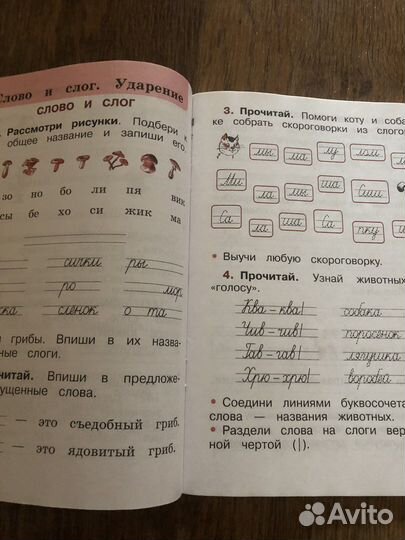 Слово и слог. Ударение
СЛОВО И СЛОГ
Рассмотри рисунки. Подбери к
общее название и запиши его
зо но бо ли ця ник
сы бе хо си жик ма
сички ры
ро мор
ка сленок о та
грибы. Впиши в их назва-
ные слоги.
читай. Впиши в предложе-
ущенные слова.
— это съедобный гриб.
— это ядовитый гриб.
3. Прочитай. Помоги коту и соба-
ке собрать скороговорки из слогов
мы ма лу мам
Ми ла мы ша Сши
Са ла ша Са пку
• Выучи любую скороговорку.
4. Прочитай. Узнай животных
«голосу».
Ква – ква! собака
Чив – чив! поросёнок
Гав – гав! лягушка
Хрю – хрю! воробей
• Соедини линиями буквосочета
слова — названия животных.
• Раздели слова на слоги вер
ной чертой (|).
Avito